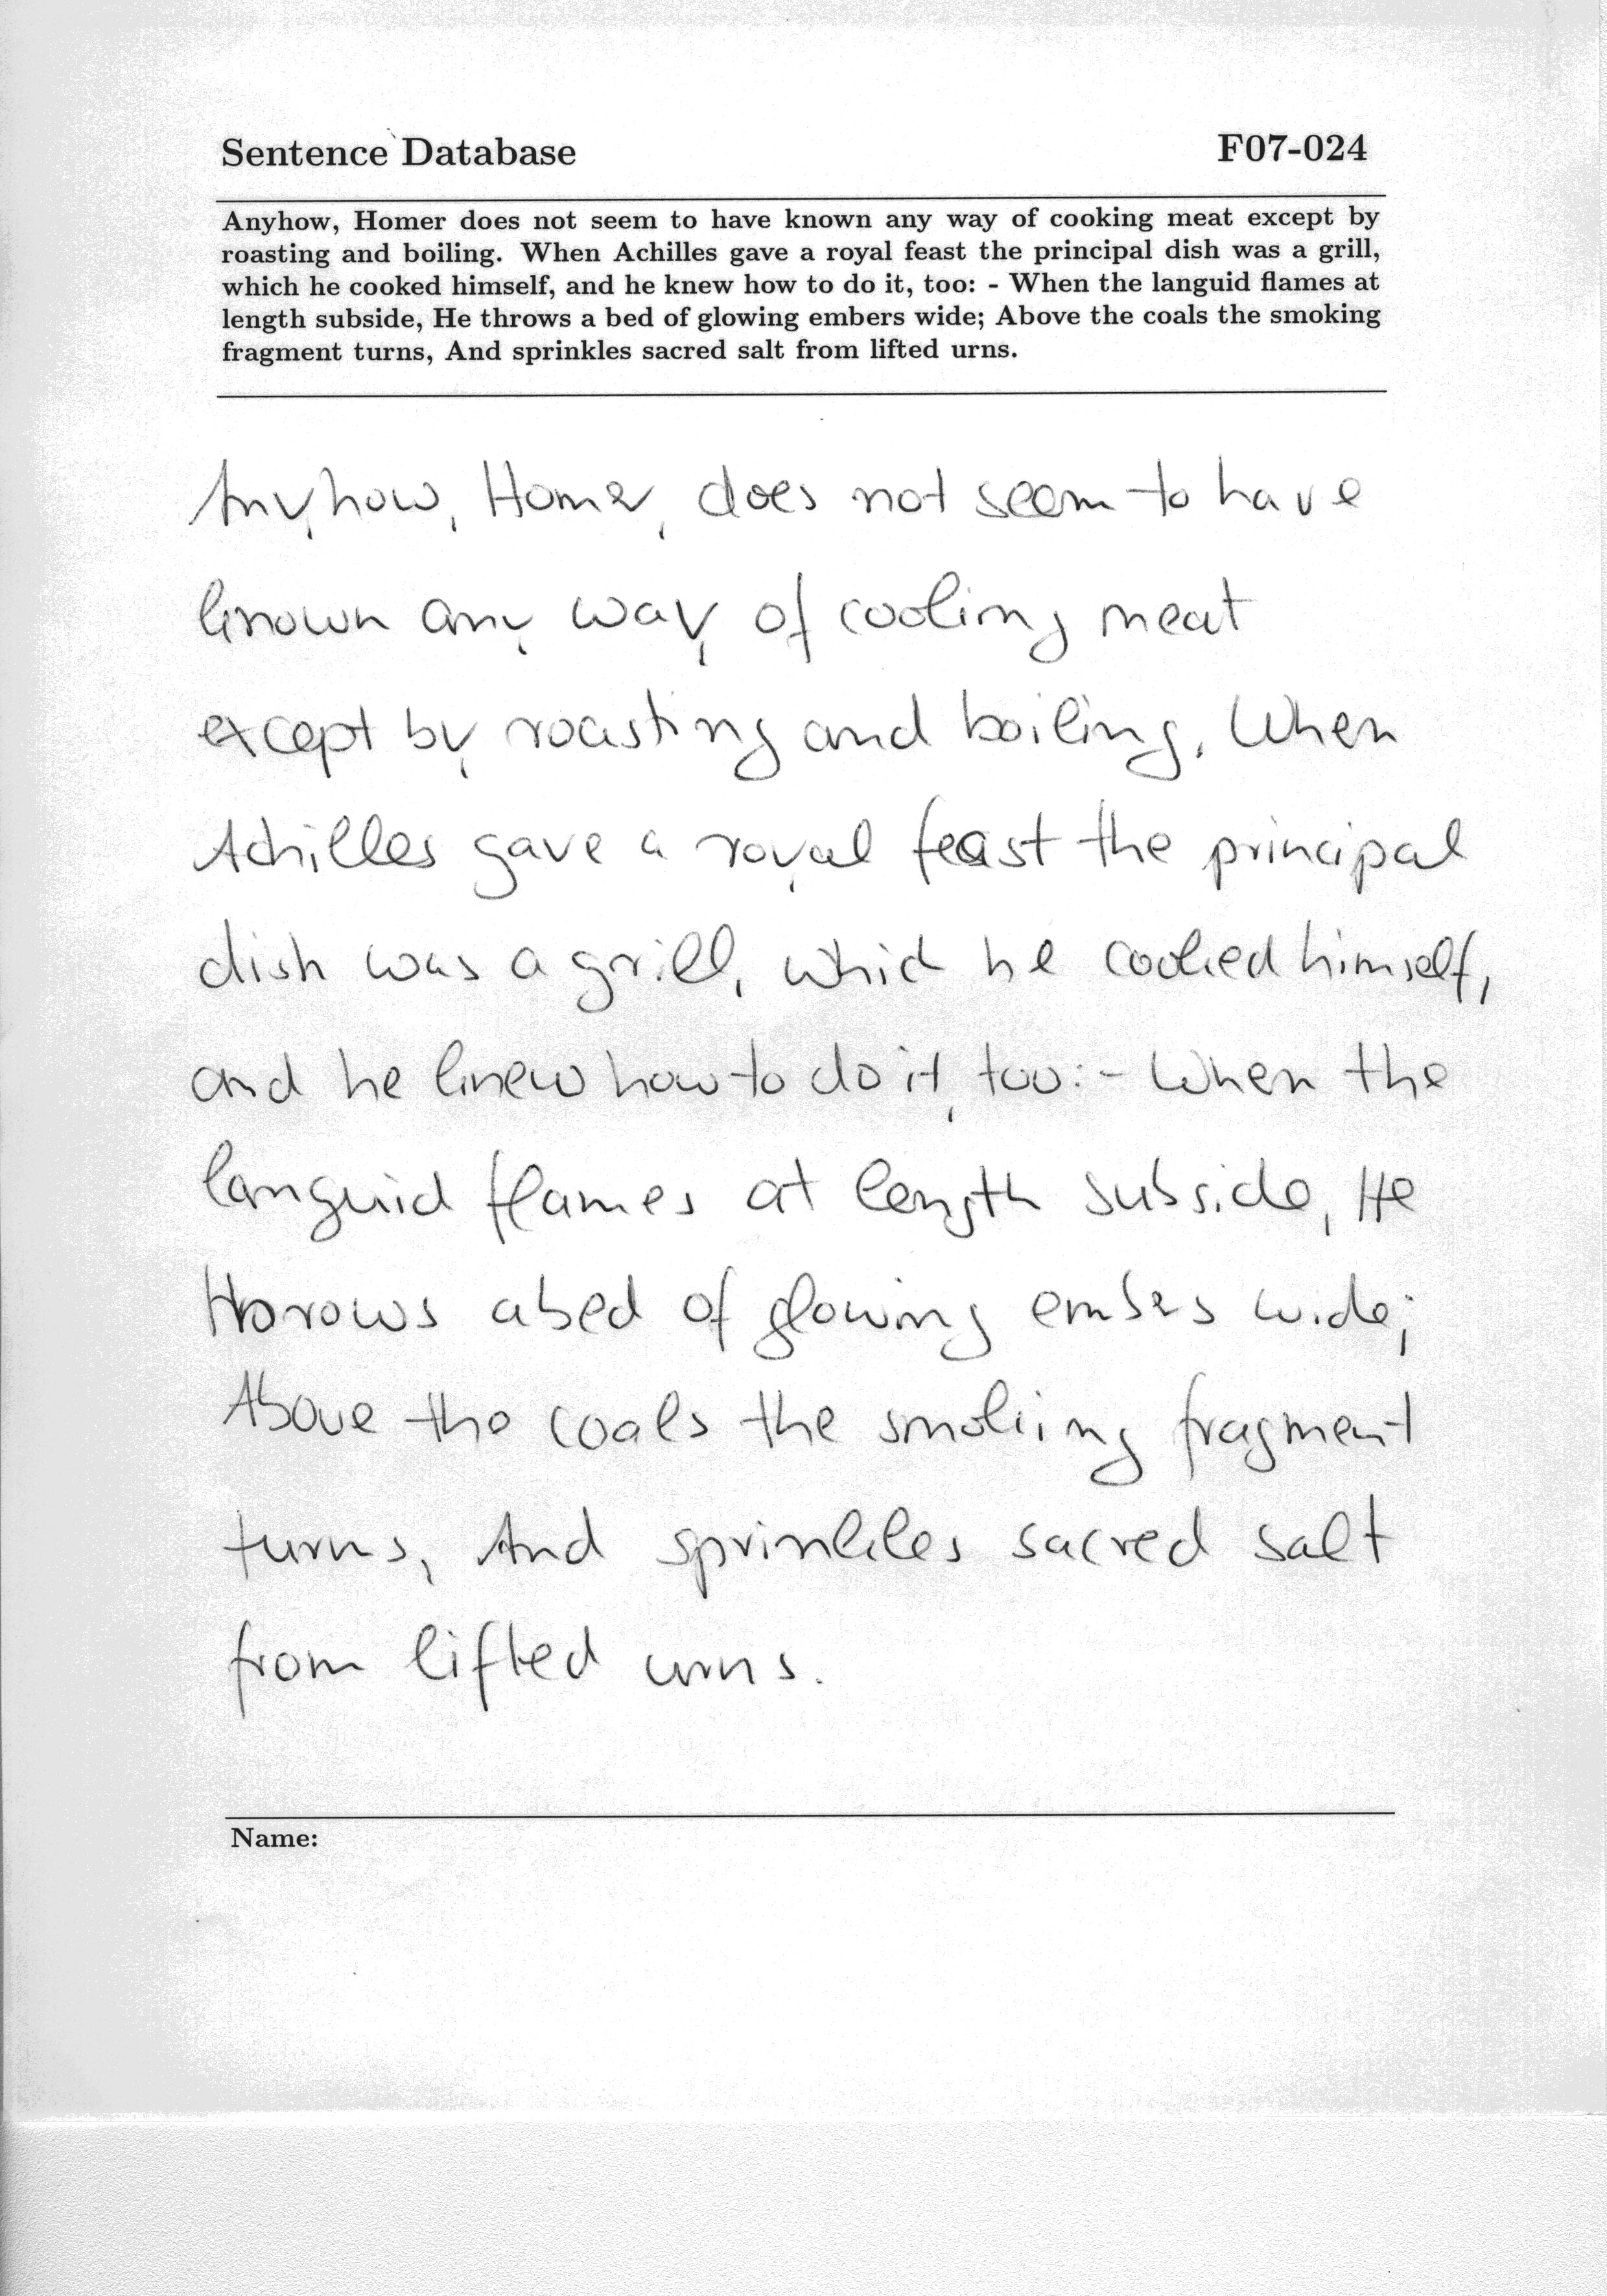 Sentence Database
F07-024
Anyhow, Homer does not seem to have known any way of cooking meat except by
roasting and boiling. When Achilles gave a royal feast the principal dish was a grill,
which he cooked himself, and he knew how to do it, too: - When the languid flames at
length subside, He throws a bed of glowing embers wide; Above the coals the smoking
fragment turns, And sprinkles sacred salt from lifted urns.
Anyhow, Homer, does not seem to have
known any way of cooking meat
except by roasting and boiling. When
Achilles gave a royal feast the principal
dish was a grill, which he cooked himself,
and he knew how to do it, too: - When the
languid flames at length subside, He
throws a bed of glowing embers wide;
Above the coals the smoking fragment
turns, And sprinkles sacred salt
from lifted urns.
Name: